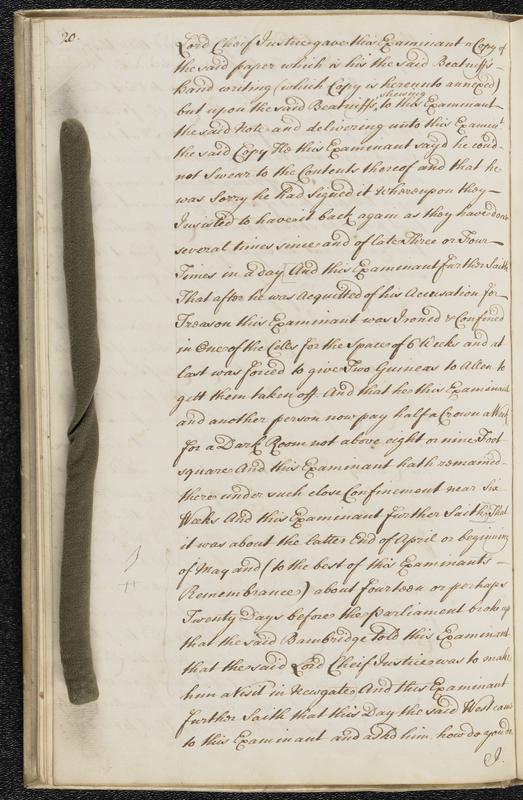 20.
Lord Cheif Justice gave this Examinant a Copy of
the said paper which is his the said Beatniffs
hand writing (which Copy is hereunto annexed)
shewing
but upon the said Beatniffs, to this Examinant
the said Note and delivering unto this Examint
the said Copy He this Examinant sayd he coud
not Swear to the Contents thereof and that he
was Sorry he had signed it Whereupon they
Insisted to have it back again as they have done
several times since and of late Three or Four
Times in a day And this Examinant further Saith
That after he was Acquitted of his Accusation for
Treason this Examinant was Ironed & Confined
in One of the Cells for the Space of 6 Weeks and at
last was forced to give Two Guineas to Allen to
gett them taken off. And that he this Examinant
and another person now pay half a Crown a Week
for a Dark Room not above eight or nine Foot
square And this Examinant hath remained
there under such close Confinement near Six
Weeks And this Examinant further Saith That
it was about the latter End of April or beginning
of May and (to the best of this Examinants
Remembrance) about fourteen or perhaps
Twenty Days before the Parliament broke up
that the said Bambridge told this Examinant
that the said Lord Cheif Justice was to make
him a Visit in Newgate And this Examinant
further Saith that this Day the said West came
to this Examinant and askd him, how do you do
J.